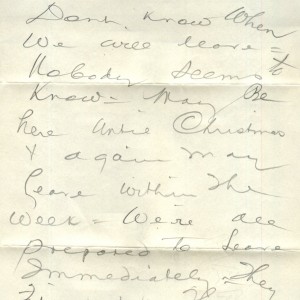 Dont Know When
We will leave =
Nobody seems to
Know = May Be
here until Christmas
& again may
leave within the
week = We're all
prepared to leave
Immediately = They